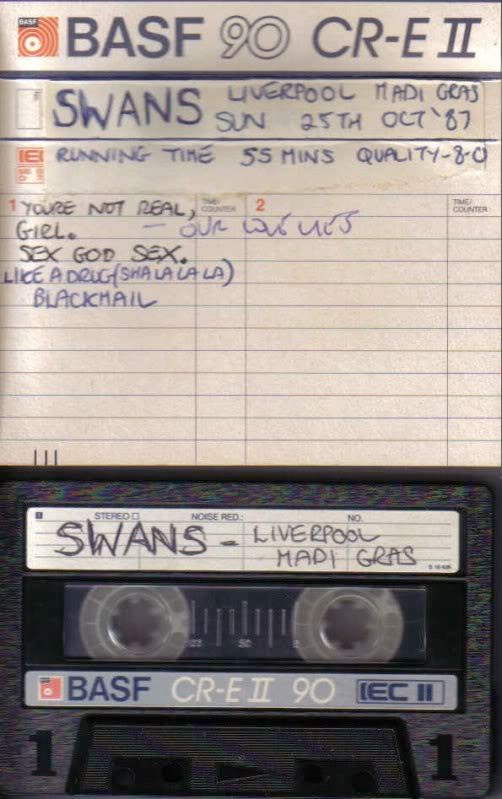 BASF 90 CR-E II
SWANS LIVERPOOL MADI GRAS
SUN 25TH OCT '87
IEC II RUNNING TIME 55 MINS QUALITY-8.0
1 YOURE NOT REAL, TIME/COUNTER 2 TIME/COUNTER
GIRL. — OUR LOVE LIES
SEX GOD SEX.
LIKE A DRUG (SHA LA LA LA)
BLACKMAIL
STEREO NOISE RED.: NO.
SWANS - LIVERPOOL
MADI GRAS
BASF CR-E II 90 IEC II
1 1